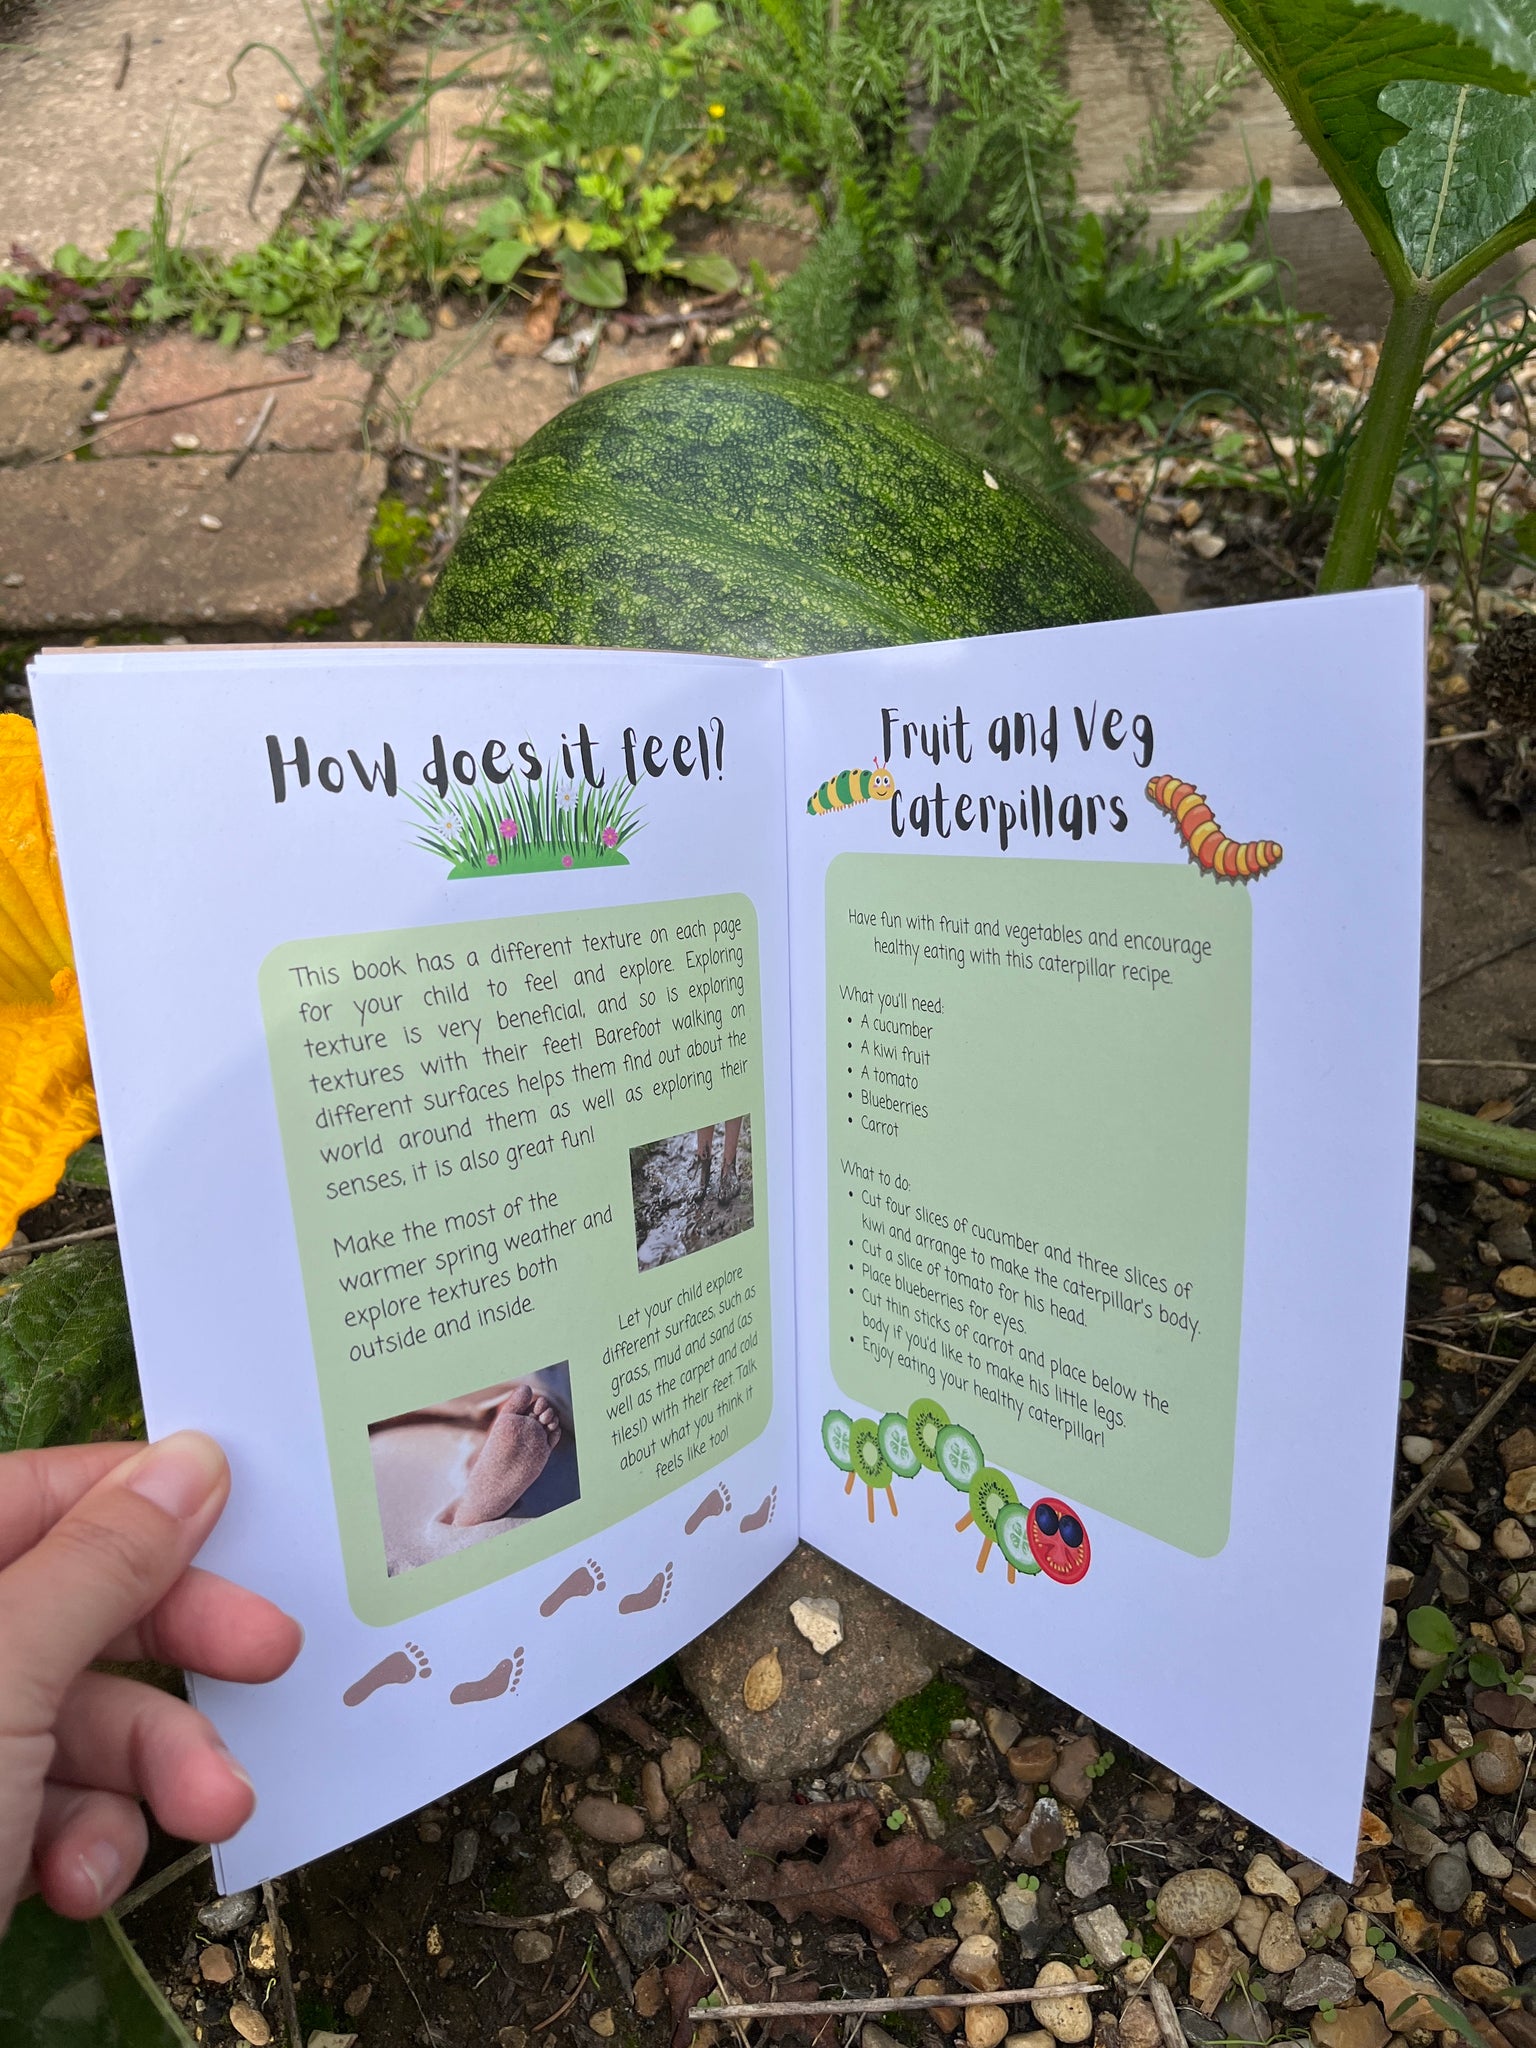 How does it feel?
This book has a different texture on each page
for your child to feel and explore. Exploring
texture is very beneficial, and so is exploring
textures with their feet! Barefoot walking on
different surfaces helps them find out about the
world around them as well as exploring their
senses, it is also great fun!
Make the most of the
warmer spring weather and
explore textures both
outside and inside.
Let your child explore
different surfaces, such as
grass, mud and sand (as
well as the carpet and cold
tiles!) with their feet. Talk
about what you think it
feels like too!
Fruit and Veg
Caterpillars
Have fun with fruit and vegetables and encourage
healthy eating with this caterpillar recipe.
What you'll need:
• A cucumber
• A kiwi fruit
• A tomato
• Blueberries
• Carrot
What to do:
• Cut four slices of cucumber and three slices of
kiwi and arrange to make the caterpillar's body.
• Cut a slice of tomato for his head.
• Place blueberries for eyes.
• Cut thin sticks of carrot and place below the
body if you'd like to make his little legs.
• Enjoy eating your healthy caterpillar!